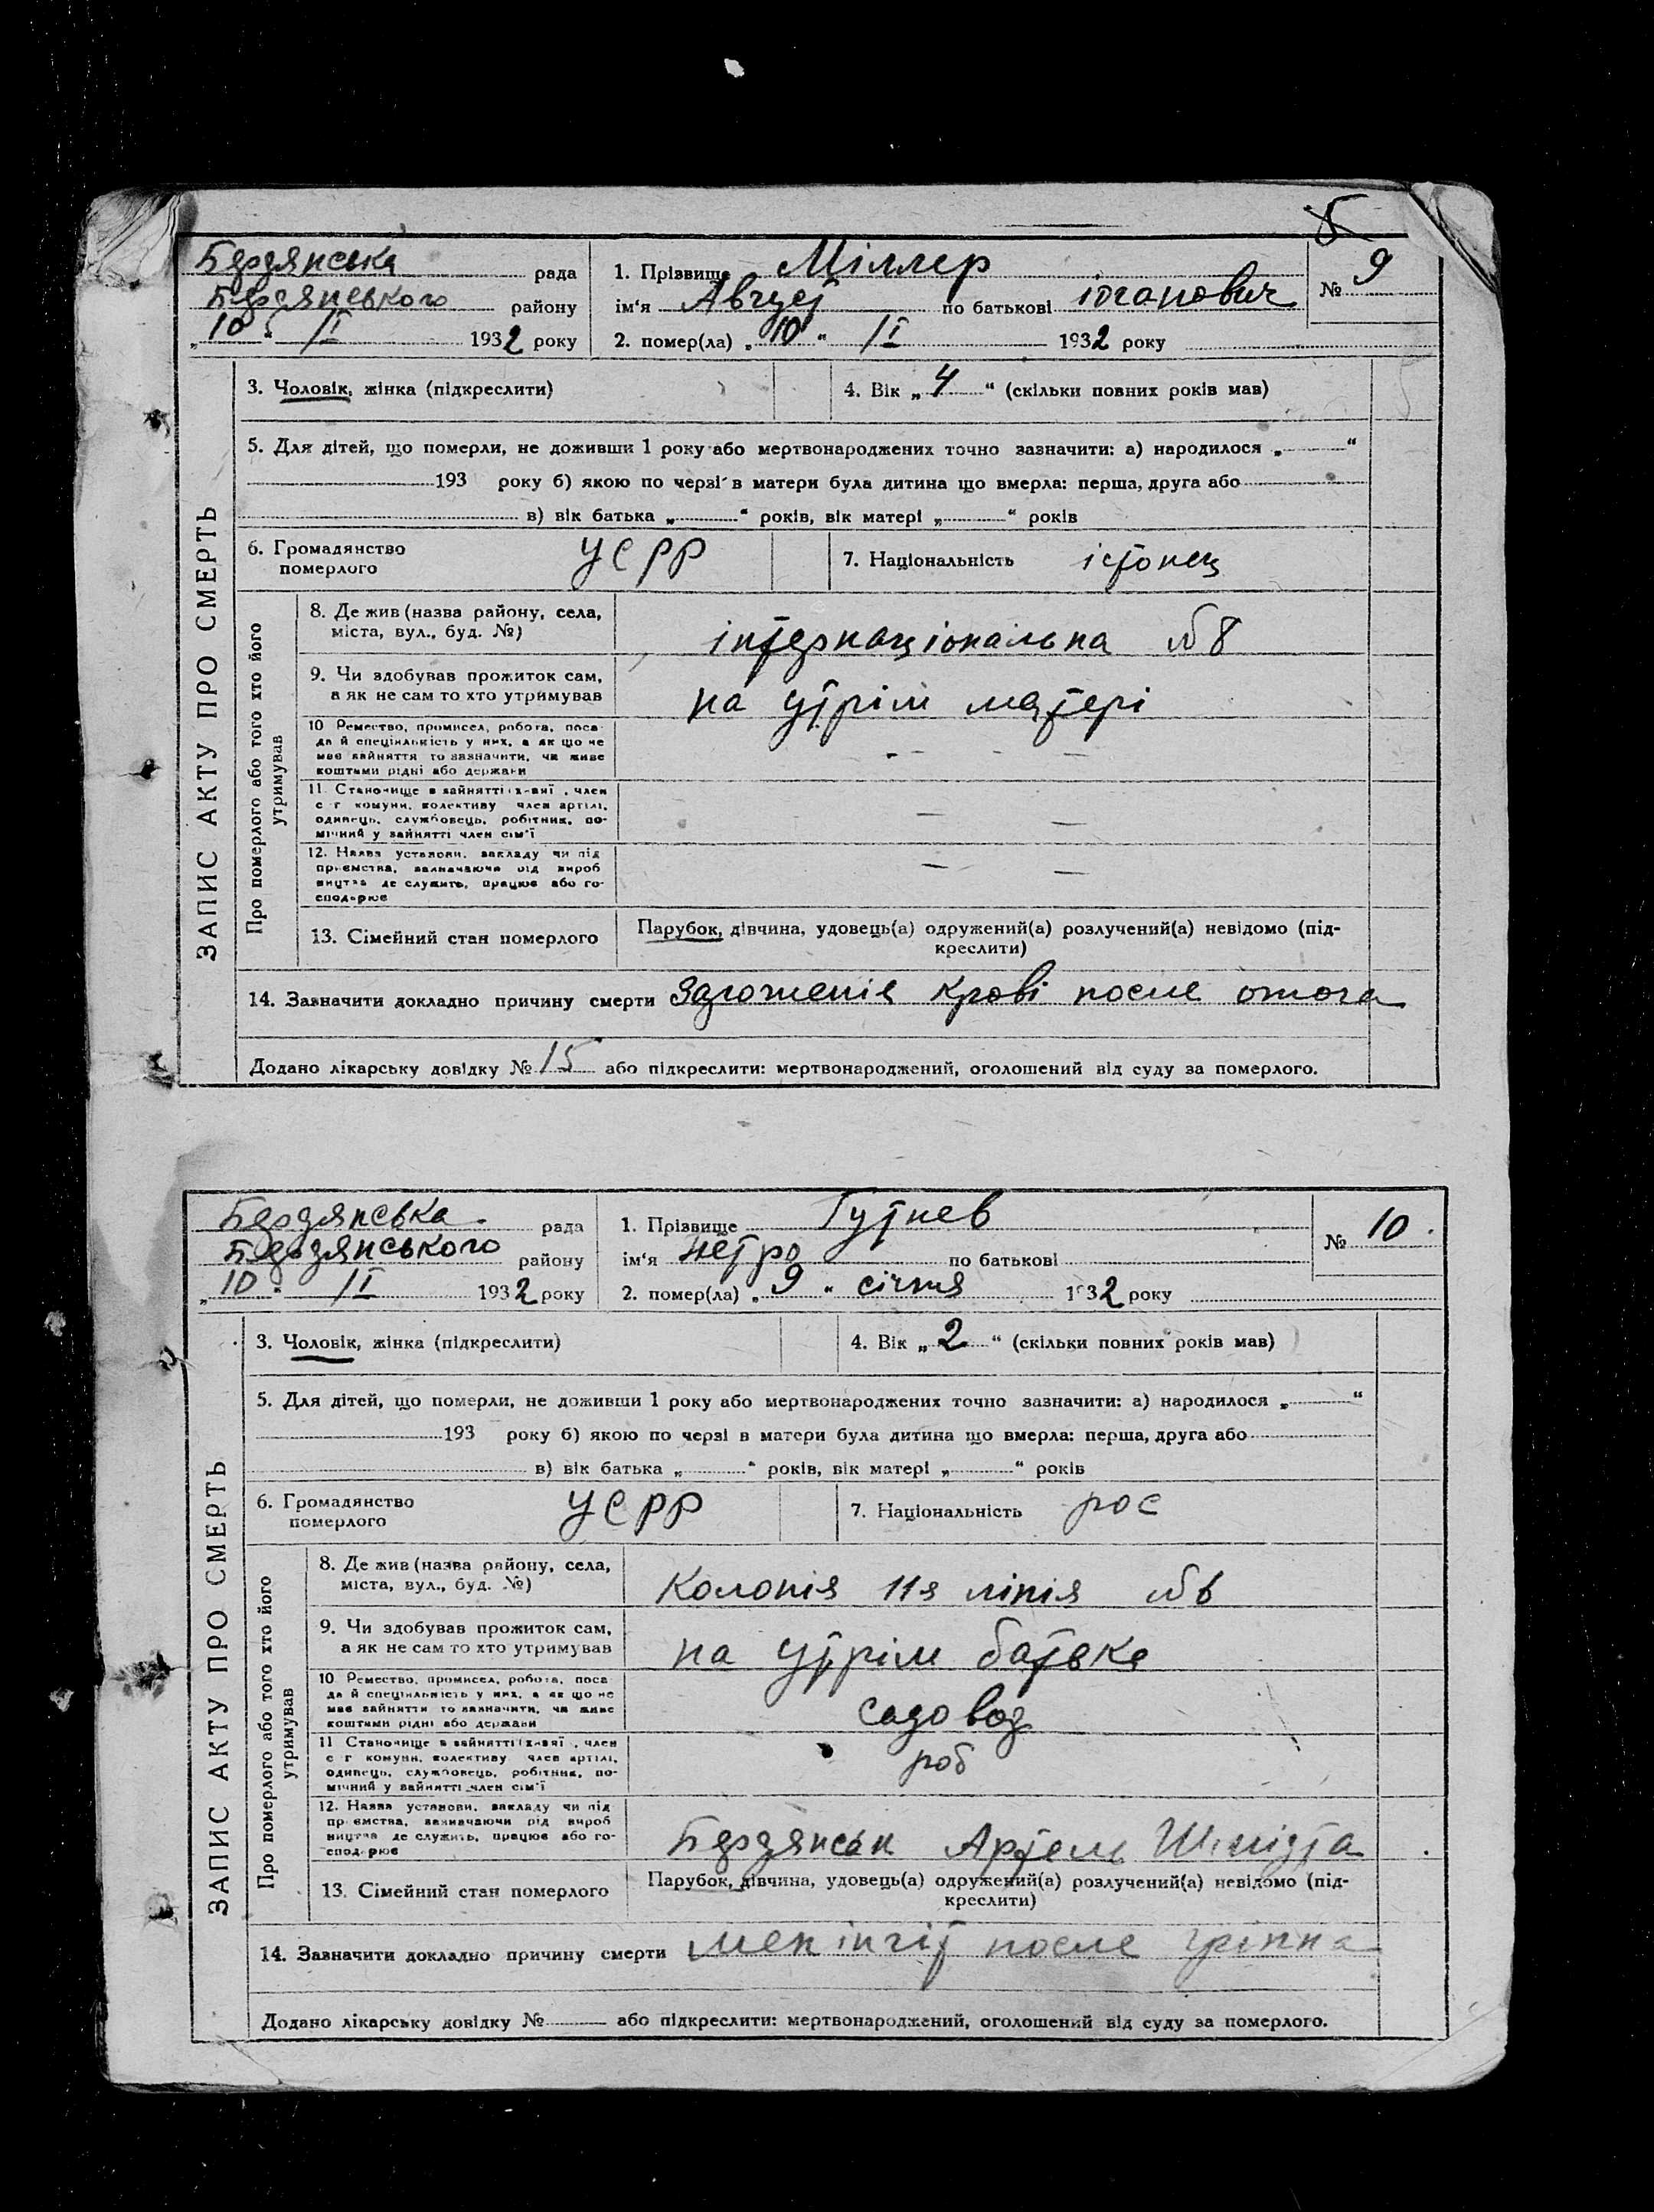 Бердянська рада
Бердянського району
„10“ /I 1932 року
1. Прізвище Міллер
ім'я Август по батькові Юганович
2. помер(ла) „10“ /I 1932 року
№ 9
ЗАПИС АКТУ ПРО СМЕРТЬ
3. Чоловік, жінка (підкреслити)
4. Вік „4“ (скільки повних років мав)
5. Для дітей, що померли, не доживши 1 року або мертвонароджених точно зазначити: а) народилося „ “
193 року б) якою по черзі в матери була дитина що вмерла: перша, друга або
в) вік батька „ “ років, вік матері „ “ років
6. Громадянство померлого УСРР
7. Національність істонец
Про померлого або того хто його утримував
8. Де жив (назва району, села,
міста, вул., буд. №)
інтернаціональна №8
9. Чи здобував прожиток сам,
а як не сам то хто утримував
на утрім матері
10 Ремество, промисел, робота, поса-
да й спеціяльність у них, а як що не
має зайняття то зазначити, чи живе
коштами рідні або держави
- - -
11. Становище в зайнятті, член
с г комуни, колективу член артілі,
одинець, службовець, робітник, по-
мічний у зайнятті член сім'ї
— —
12. Назва установи, закладу чи під
приємства, зазначаючи рід вироб
ництва де служить, працює або го-
сподарює
— —
13. Сімейний стан померлого
Парубок, дівчина, удовець(а) одружений(а) розлучений(а) невідомо (під-
креслити)
14. Зазначити докладно причину смерти Зарожения крові после ожога
Додано лікарську довідку № 15 або підкреслити: мертвонароджений, оголошений від суду за померлого.
Бердянська рада
Бердянського району
„10“ /I 1932 року
1. Прізвище Гутнев
ім'я Петро по батькові
2. помер(ла) „9“ січня 1932 року
№ 10
ЗАПИС АКТУ ПРО СМЕРТЬ
3. Чоловік, жінка (підкреслити)
4. Вік „2“ (скільки повних років мав)
5. Для дітей, що померли, не доживши 1 року або мертвонароджених точно зазначити: а) народилося „ “
193 року б) якою по черзі в матери була дитина що вмерла: перша, друга або
в) вік батька „ “ років, вік матері „ “ років
6. Громадянство померлого УСРР
7. Національність рос
Про померлого або того хто його утримував
8. Де жив (назва району, села,
міста, вул., буд. №)
Колонія 11я лінія №6
9. Чи здобував прожиток сам,
а як не сам то хто утримував
на утрім батька
10 Ремество, промисел, робота, поса-
да й спеціяльність у них, а як що не
має зайняття то зазначити, чи живе
коштами рідні або держави
садовод
11 Становище в зайнятті, член
с г комуни, колективу член артілі,
одинець, службовець, робітник, по-
мічний у зайнятті член сім'ї
роб
12. Назва установи, закладу чи під
приємства, зазначаючи рід вироб
ництва де служить, працює або го-
сподарює
Бердянськ Артель Шмідта
13. Сімейний стан померлого
Парубок, дівчина, удовець(а) одружений(а) розлучений(а) невідомо (під-
креслити)
14. Зазначити докладно причину смерти менінгіт после гріппа
Додано лікарську довідку № або підкреслити: мертвонароджений, оголошений від суду за померлого.